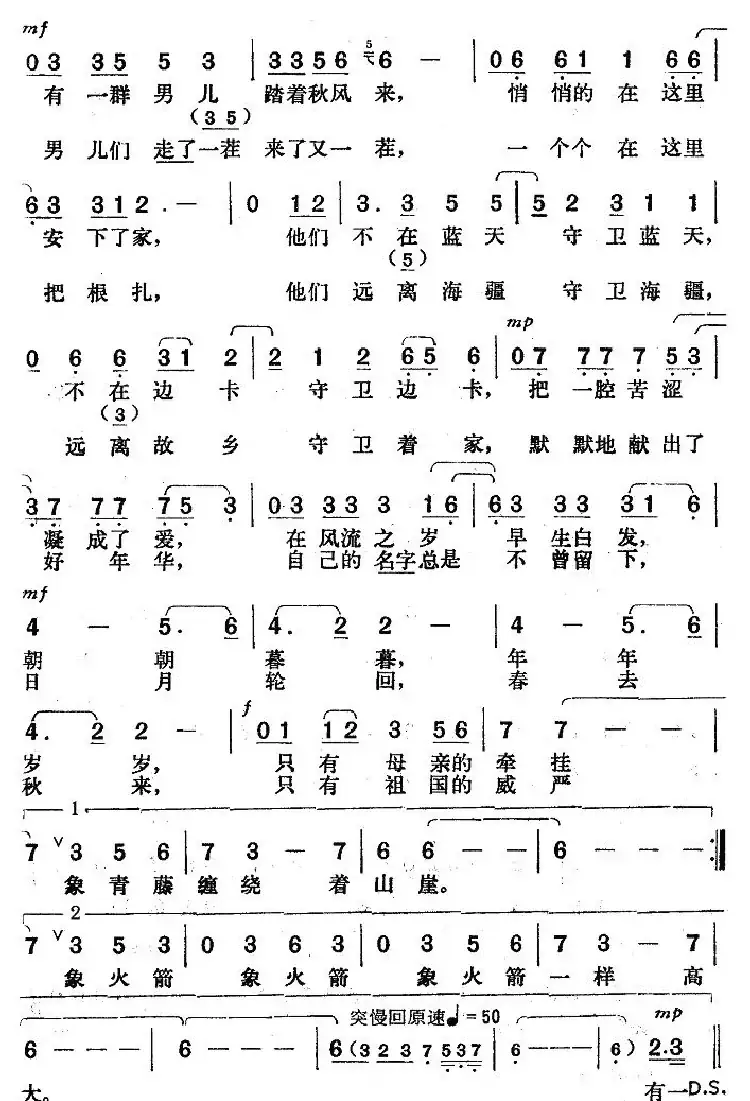 mf
0 3 3 5 5 3 | 3 3 5 6 5 6 — | 0 6 6 1 1 6 6 |
有 一群 男 儿 踏着秋风 来, 悄 悄的 在 这里
(3 5)
男 儿们 走了一茬 来了又一 茬, 一 个个 在 这里
6 3 3 1 2 . — | 0 1 2 | 3 . 3 5 5 | 5 2 3 1 1 |
安 下了家, 他们 不 在 蓝 天 守 卫 蓝 天,
(5)
把 根 扎, 他们 远 离 海 疆 守 卫 海 疆,
mp
0 6 6 3 1 2 | 2 1 2 6 5 6 | 0 7 7 7 7 5 3 |
不 在 边 卡 守 卫 边 卡, 把 一腔 苦 涩
(3)
远 离 故 乡 守 卫 着 家, 默 默地 献 出了
3 7 7 7 7 5 3 | 0 3 3 3 3 1 6 | 6 3 3 3 3 1 6 |
凝 成了 爱, 在 风流 之 岁 早 生白 发,
好 年 华, 自 己的 名字总是 不 曾留 下,
mf
4 — 5 . 6 | 4 . 2 2 — | 4 — 5 . 6 |
朝 朝 暮 暮, 年 年
日 月 轮 回, 春 去
f
4 . 2 2 — | 0 1 1 2 3 5 6 | 7 7 — — |
岁 岁, 只 有 母 亲的 牵 挂
秋 来, 只 有 祖 国的 威 严
1
7 V 3 5 6 | 7 3 — 7 | 6 6 — — | 6 — — :||
象 青 藤 缠 绕 着 山 崖。
2
7 V 3 5 3 | 0 3 6 3 | 0 3 5 6 | 7 3 — 7 |
象 火 箭 象 火 箭 象 火 箭 一 样 高
突慢回原速♩=50 mp
6 — — — | 6 — — — | 6 (3 2 3 7 5 3 7 | 6 — — — | 6) 2·3 ||
大。 有一 D.S.